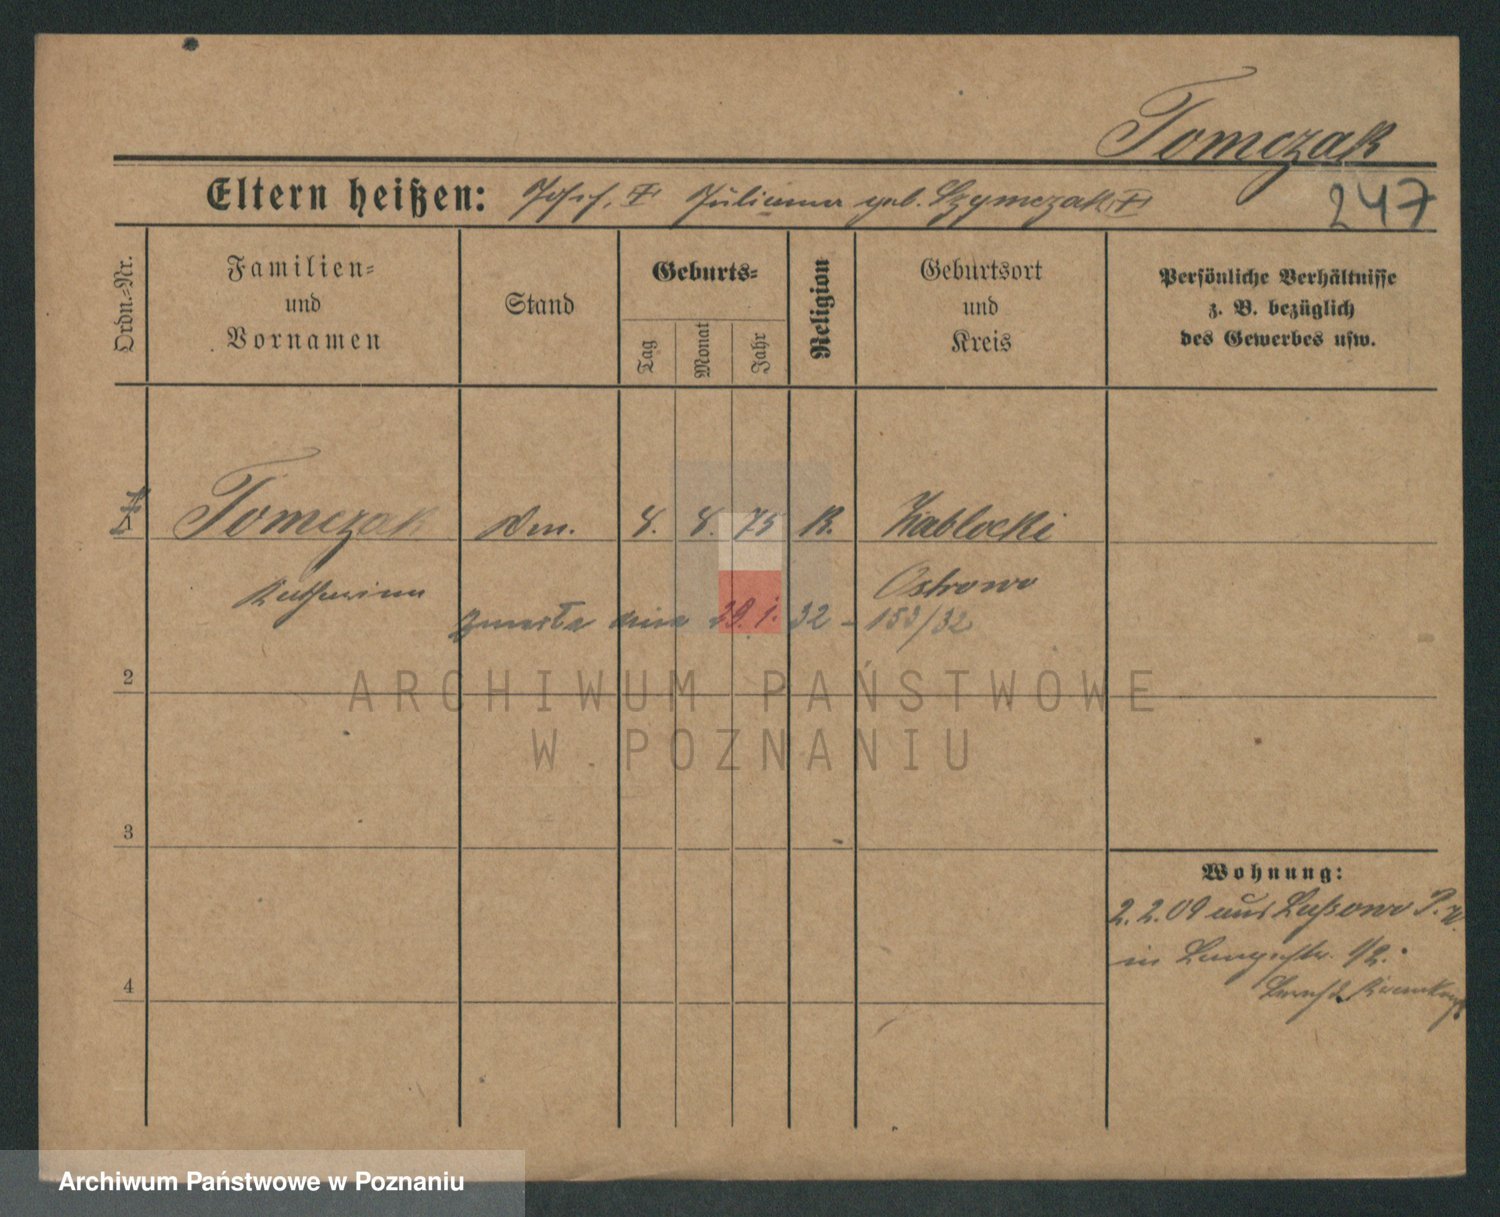 Tomczak
Eltern heißen: Josef. † Juliana geb. Szymczak †
247
Ordn.-Nr.
Familien-
und
Vornamen
Stand
Geburts-
Tag
Monat
Jahr
Religion
Geburtsort
und
Kreis
Persönliche Verhältnisse
z. B. bezüglich
des Gewerbes usw.
Tomczak 8. 8. 75 K. Zablocki
Katharina Ostrowo
zmarła dnia 29. 1. 32 - 153/32
2
ARCHIWUM PAŃSTWOWE
W POZNANIU
3
Wohnung:
2.2.09 aus Lussowo P. W.
in Langestr. 1/2.
4
Archiwum Państwowe w Poznaniu